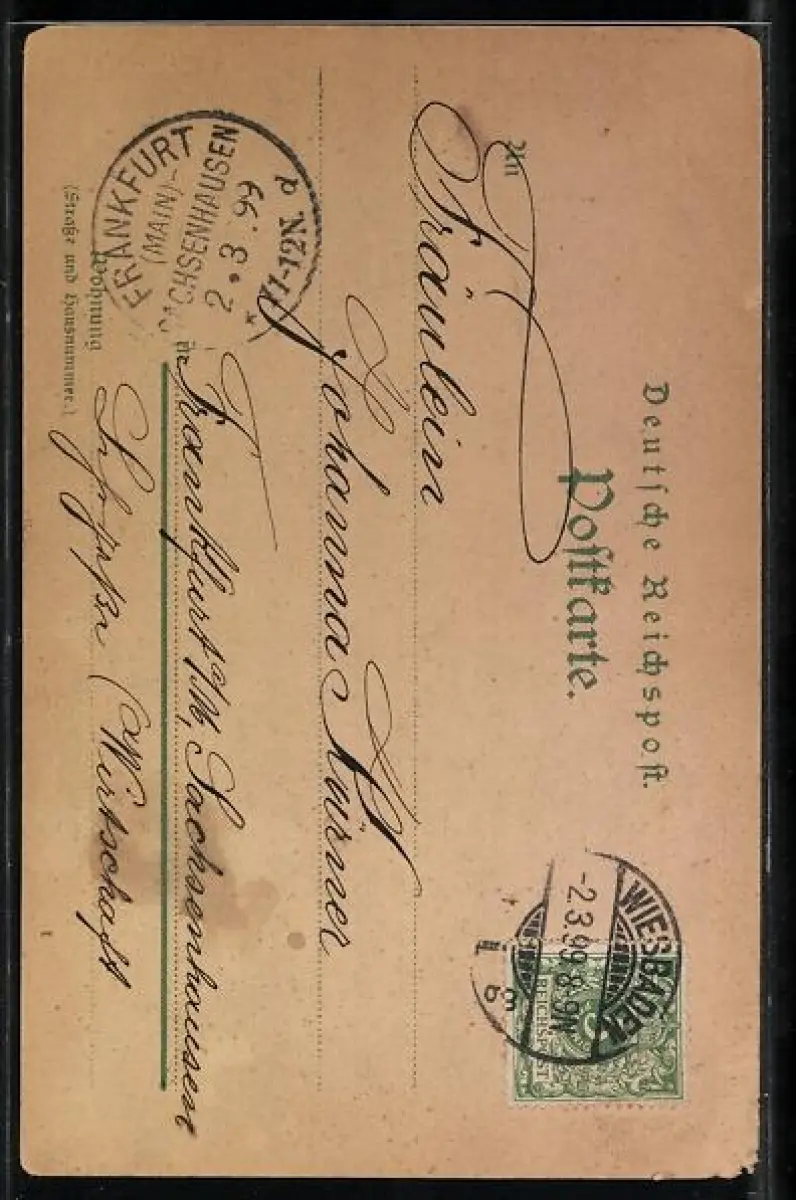 Deutsche Reichspost.
Postkarte.
WIESBADEN
-2.3.99 8-9N
REICHSPOST
An
Fräulein
Johanna Kürner
in Frankfurt a/M, Sachsenhausen
Wohnung
(Wirtschaft
(Straße und Hausnummer.)
FRANKFURT
(MAIN)-
SACHSENHAUSEN
2.3.99
* 11-12N. d